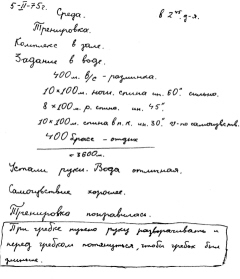 5-II-75г.
Среда. в 2 час. д-я.
Тренировка.
Комплекс в зале.
Задание в воде.
400м. в/с - разминка.
10×100м. ноги. спина ин. 60° сильно.
8×100м. р. спина ин. 45°.
10×100м. спина в п.к. ин. 30° по самочувств.
400 брасс - отдых
= 3600м.
Устали руки. Вода отличная.
Самочувствие хорошее.
Тренировка понравилась.
При гребке нужно руку разворачивать и
перед гребком потянуться, чтобы гребок был
длиннее.